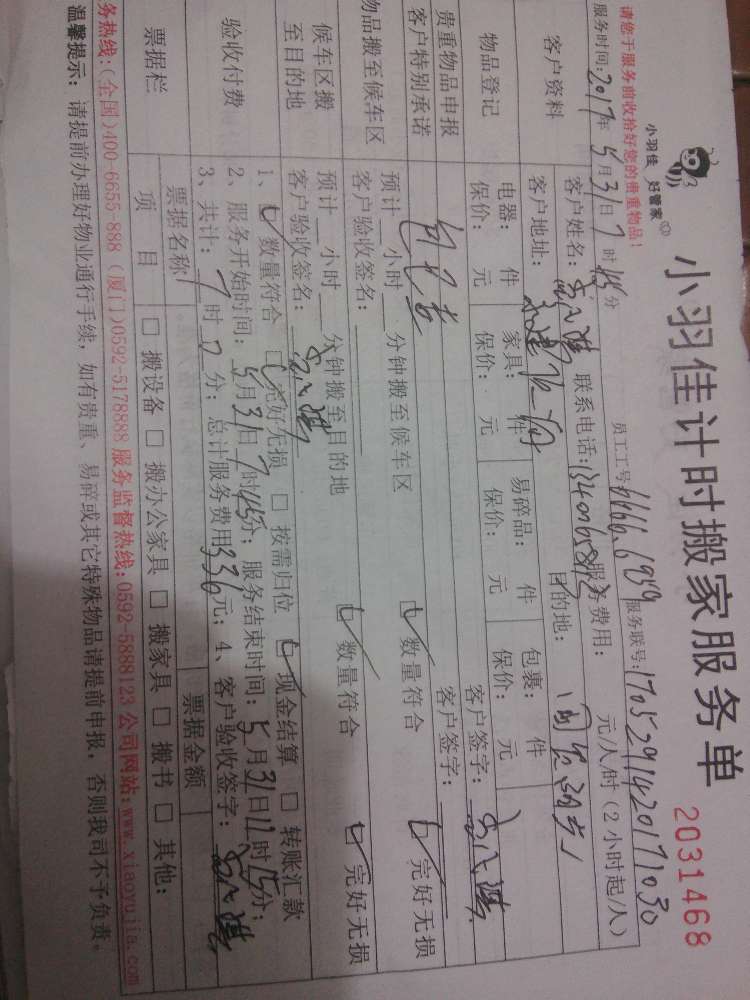 小羽佳 好管家
小羽佳计时搬家服务单
2031468
请您于服务前收拾好您的贵重物品!
员工工号6166.6959 服务联号:1705291420171030
服务时间:2017年5月31日7时45分
服务费用: 元/人/时(2小时起/人)
客户资料
客户姓名: 联系电话:
客户地址: 目的地:
物品登记
电器: 件 家具: 件 易碎品: 件 包裹: 件
保价: 元 保价: 元 保价: 元 保价: 元
贵重物品申报
客户签字:
客户特别承诺
客户签字:
物品搬至候车区
预计 小时 分钟搬至候车区 数量符合 完好无损
客户验收签名:
候车区搬至目的地
预计 小时 分钟搬至目的地 数量符合 完好无损
客户验收签名:
验收付费
1、 数量符合 完好无损 □ 按需归位 现金结算 □ 转账汇款
2、服务开始时间:5月31日7时45分;服务结束时间:5月31日12时15分;
3、共计: 时 分;总计服务费用336元;4、客户验收签字:
票据栏
票据名称 票据金额
项 目 □ 搬设备 □ 搬办公家具 □ 搬家具 □ 搬书 □ 其他:
务热线:(全国)400-6655-888 (厦门)0592-5178888 服务监督热线:0592-5888123 公司网站:www.xiaoyujia.com
温馨提示:请提前办理好物业通行手续,如有贵重、易碎或其它特殊物品请提前申报,否则我司不予负责。